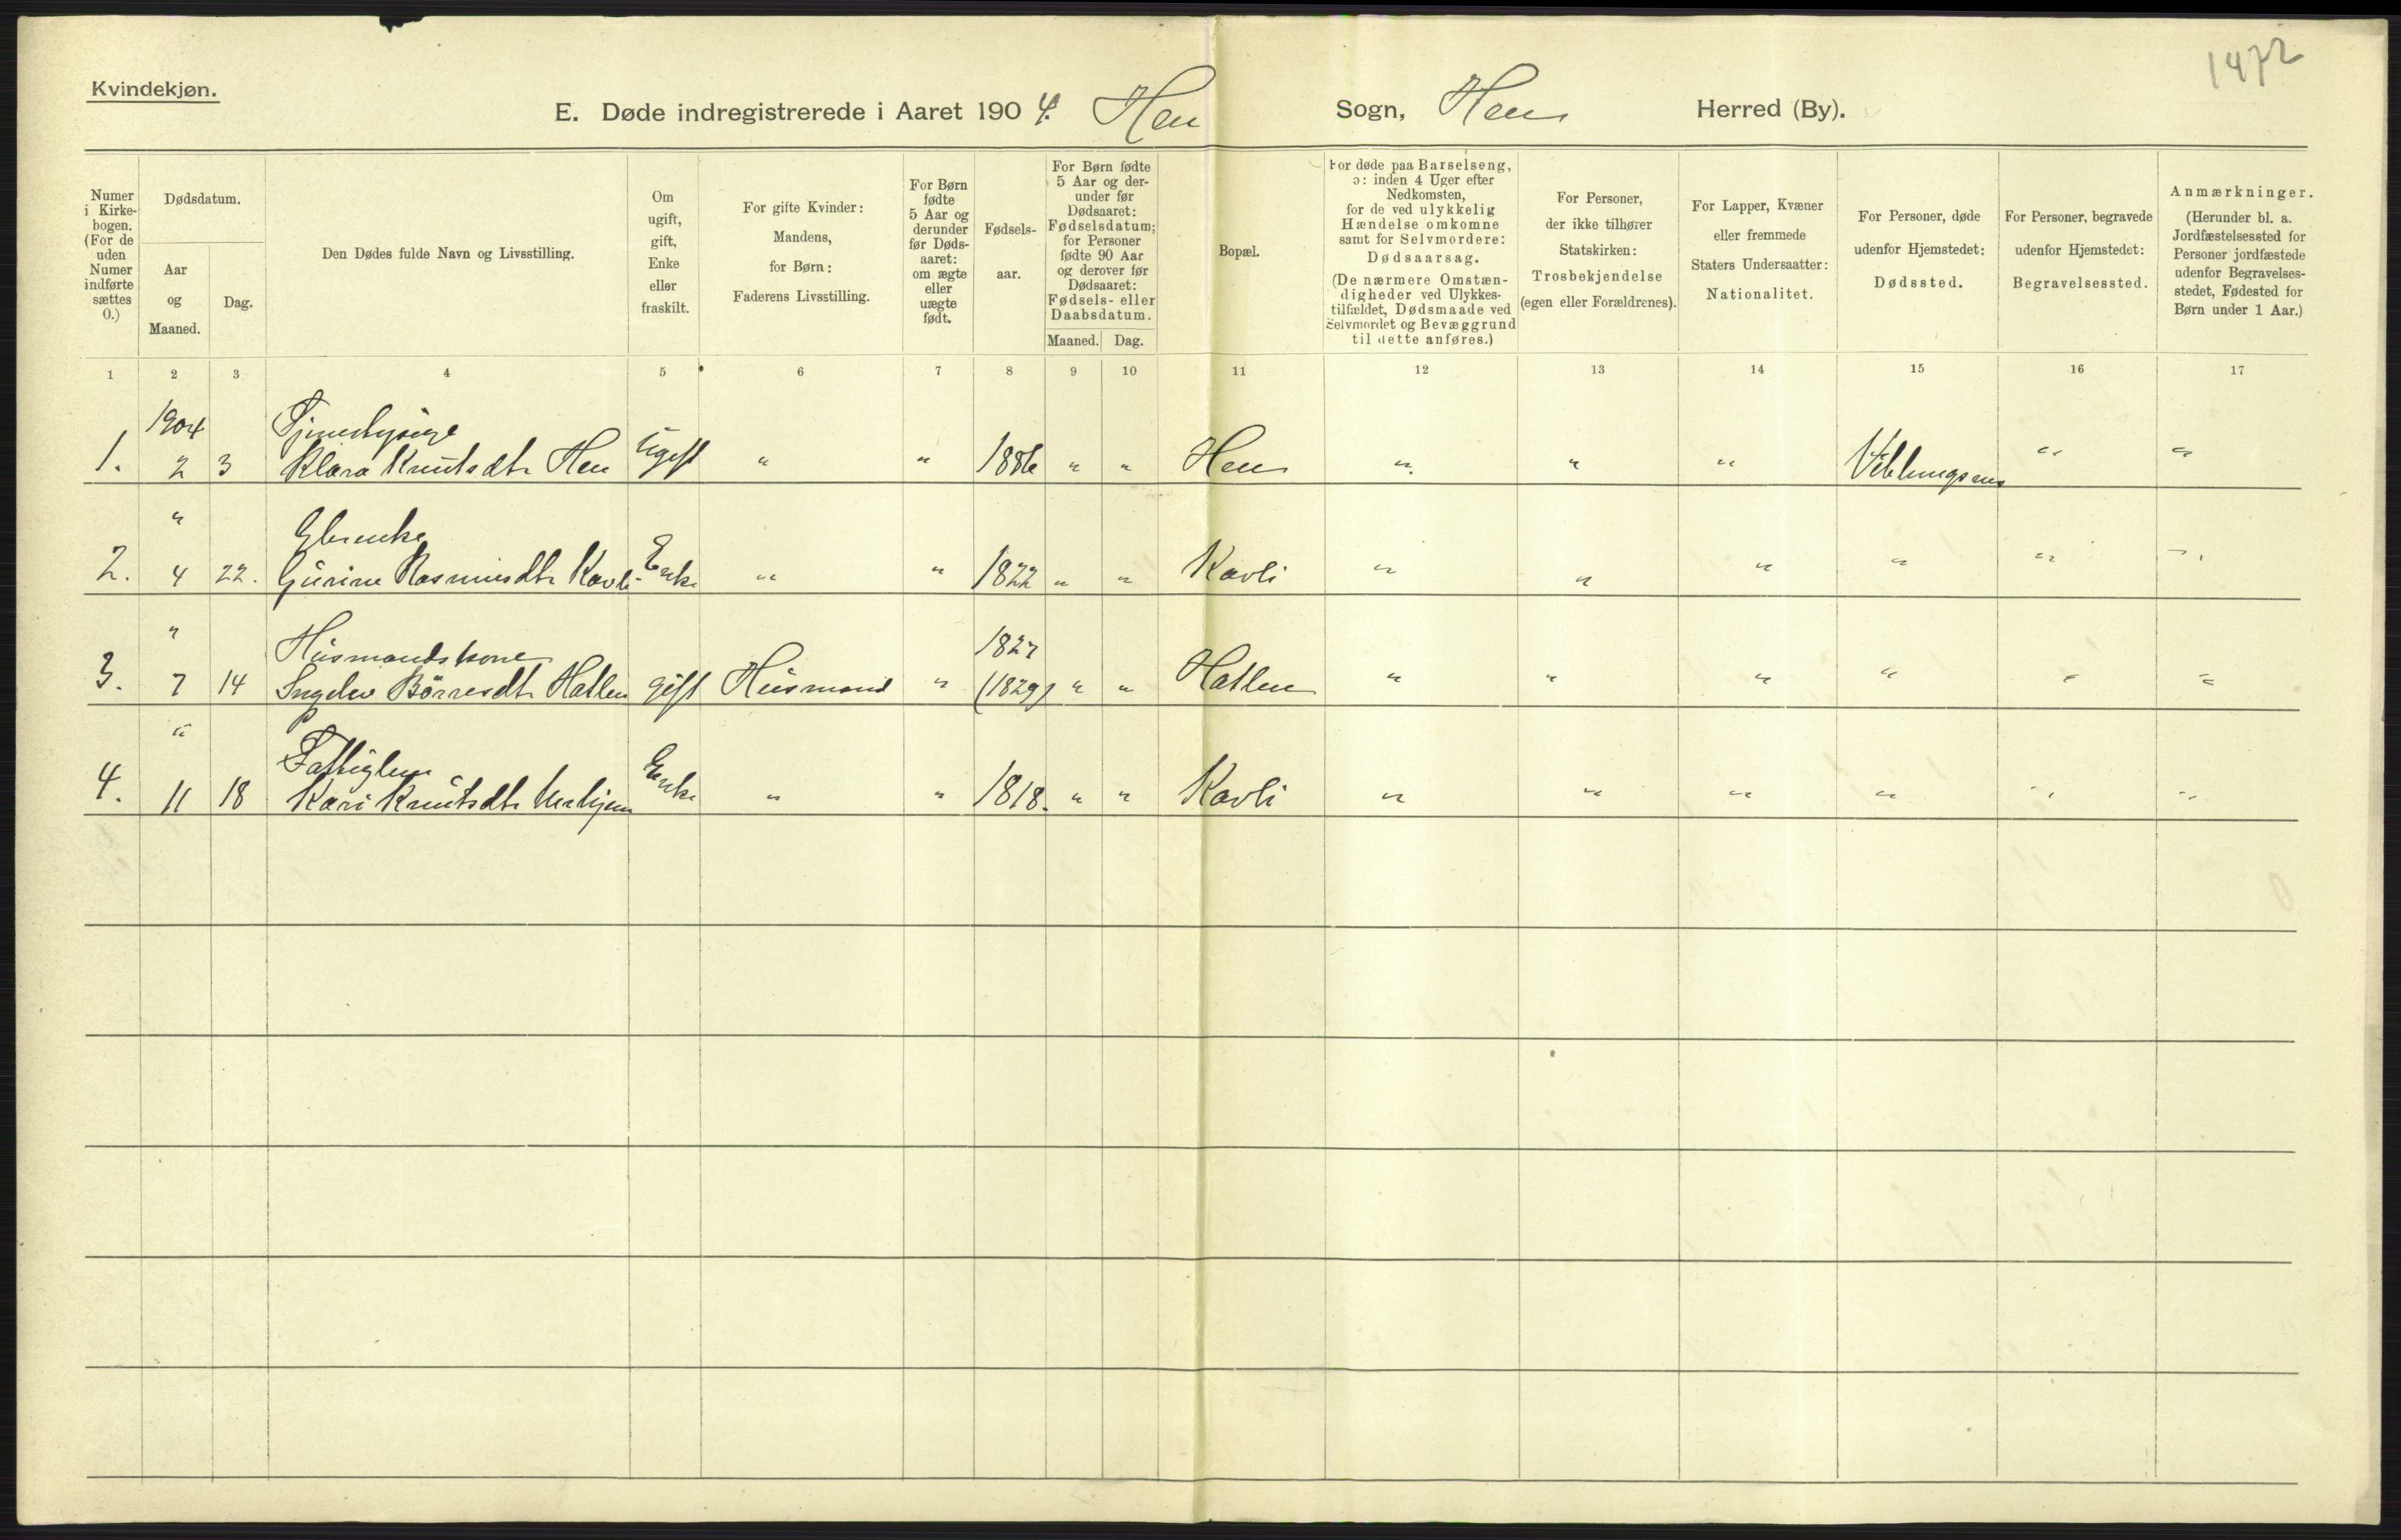 1472
Kvindekjøn.
E. Døde indregistrerede i Aaret 1904. Hen Sogn, Hen Herred (By).
Numer i Kirkebogen. (For de uden Numer indførte sættes 0.)
Dødsdatum.
Aar og Maaned.
Dag.
Den Dødes fulde Navn og Livsstilling.
Om ugift, gift, Enke eller fraskilt.
For gifte Kvinder: Mandens, for Børn: Faderens Livsstilling.
For Børn fødte 5 Aar og derunder før Dødsaaret: om ægte eller uægte født.
Fødselsaar.
For Børn fødte 5 Aar og derunder før Dødsaaret: Fødselsdatum; for Personer fødte 90 Aar og derover før Dødsaaret: Fødsels- eller Daabsdatum.
Maaned. Dag.
Bopæl.
For døde paa Barselseng, ɔ: inden 4 Uger efter Nedkomsten, for de ved ulykkelig Hændelse omkomne samt for Selvmordere: Dødsaarsag.
(De nærmere Omstændigheder ved Ulykkestilfældet, Dødsmaade ved Selvmordet og Bevæggrund til dette anføres.)
For Personer, der ikke tilhører Statskirken: Trosbekjendelse (egen eller Forældrenes).
For Lapper, Kvæner eller fremmede Staters Undersaatter: Nationalitet.
For Personer, døde udenfor Hjemstedet: Dødssted.
For Personer, begravede udenfor Hjemstedet: Begravelsessted.
Anmærkninger.
(Herunder bl. a. Jordfæstelsessted for Personer jordfæstede udenfor Begravelsesstedet, Fødested for Børn under 1 Aar.)
1 2 3 4 5 6 7 8 9 10 11 12 13 14 15 16 17
1904 Tjenestepige
1. 2 3 Klara Knutsdtr Hen Ugift " " 1886 " " Hen " " " Veblungsnes " "
" Gbrenke
2. 4 22. Gurine Rasmusdtr Kavli Enke " " 1822 " " Kavli " " " " " "
" Husmandskone 1827
3. 7 14 Ingelev Börresdtr Hatlen gift Husmand " (1829) " " Hatlen " " " " " "
" Fattiglem
4. 11 18 Kari Knutsdtr Enke " " 1818. " " Kavli " " " " " "